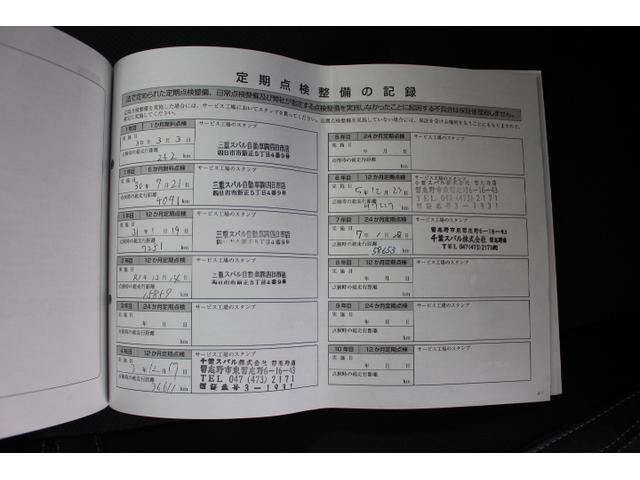 定期点検整備の記録
法で定められた定期点検整備、日常点検整備及び弊社が指定する点検整備を実施しなかったことに起因する不具合は保証修理致しません。
定期点検整備を実施した場合には、サービス工場においてスタンプを貰ってください。定期点検整備を実施していない場合には、保証を受ける権利を失うことにもなりますので、
確実に実施してください。
1年目 1か月無料点検 サービス工場のスタンプ
実施日
30年3月3日
点検時の総走行距離
262 km
三重スバル自動車㈱四日市店
四日市市新正5丁目4番9号
1年目 6か月無料点検 サービス工場のスタンプ
実施日
30年7月21日
点検時の総走行距離
4091 km
三重スバル自動車㈱四日市店
四日市市新正5丁目4番9号
1年目 12か月定期点検 サービス工場のスタンプ
実施日
31年1月19日
点検時の総走行距離
7251 km
三重スバル自動車㈱四日市店
2年目 12か月定期点検 サービス工場のスタンプ
実施日
点検時の総走行距離
15849 km
三重スバル自動車㈱四日市店
四日市市新正5丁目4番9号
3年目 24か月定期点検 サービス工場のスタンプ
実施日
年 月 日
点検時の総走行距離
km
4年目 12か月定期点検 サービス工場のスタンプ
実施日
3年12月17日
点検時の総走行距離
36611 km
千葉スバル株式会社 習志野店
習志野市東習志野6-16-43
TEL 047(473)2171
認証番号3-1931
5年目 24か月定期点検 サービス工場のスタンプ
実施日
年 月 日
点検時の総走行距離
km
6年目 12か月定期点検 サービス工場のスタンプ
実施日
5年12月23日
点検時の総走行距離
km
千葉スバル株式会社 習志野店
習志野市東習志野6-16-43
TEL 047(473)2171
認証番号3-1931
7年目 24か月定期点検 サービス工場のスタンプ
実施日
点検時の総走行距離
58653 km
習志野市東習志野6-16-43
千葉スバル株式会社 習志野店
TEL 047(473)2171㈹
8年目 12か月定期点検 サービス工場のスタンプ
実施日
年 月 日
点検時の総走行距離
km
9年目 24か月定期点検 サービス工場のスタンプ
実施日
年 月 日
点検時の総走行距離
km
10年目 12か月定期点検 サービス工場のスタンプ
実施日
年 月 日
点検時の総走行距離
km